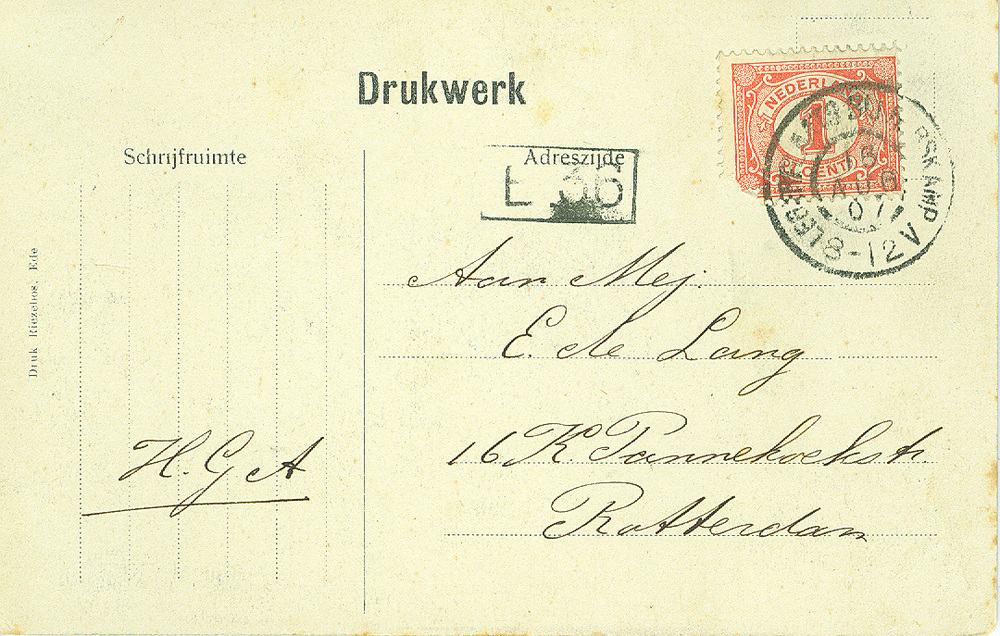 Drukwerk
NEDERLAND
1
CENT
LEGERPL. HARSKAMP
15
AUG
07
8-12V
Schrijfruimte
Adreszijde
E 36
Aan Mej.
E. de Lang
16 K. Pannekoekstr
Rotterdam
H. G A
Druk Riezebos, Ede